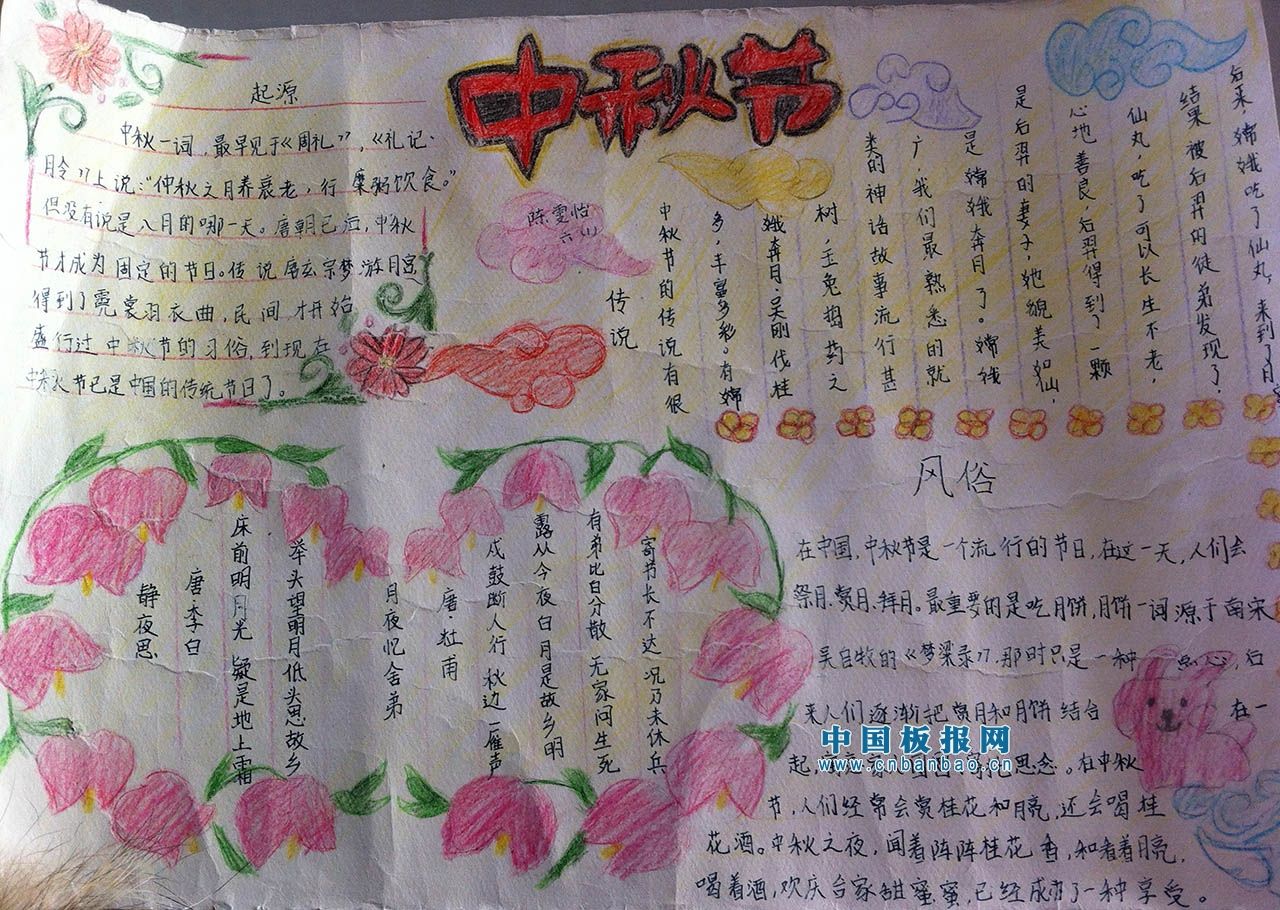 中秋节
陈雯怡
六(1)
起源
中秋一词，最早见于《周礼》，《礼记·
月令》上说：“仲秋之月养衰老，行糜粥饮食。”
但没有说是八月的哪一天。唐朝已后，中秋
节才成为固定的节日。传说唐玄宗梦游月宫
得到了霓裳羽衣曲，民间才开始
盛行过中秋节的习俗，到现在
中秋节已是中国的传统节日了。
传说
中秋节的传说有很
多，丰富多彩。有嫦
娥奔月、吴刚伐桂
树，玉兔捣药之
类的神话故事流行甚
广，我们最熟悉的就
是嫦娥奔月了。嫦娥
是后羿的妻子，她貌美如仙，
心地善良，后羿得到了一颗
仙丸，吃了可以长生不老，
结果被后羿的徒弟发现了，
后来，嫦娥吃了仙丸，来到了月
静夜思
唐·李白
床前明月光 疑是地上霜
举头望明月低头思故乡
月夜忆舍弟
唐·杜甫
戍鼓断人行 秋边一雁声
露从今夜白月是故乡明
有弟比白分散 无家问生死
寄书长不达 况乃未休兵
风俗
在中国，中秋节是一个流行的节日，在这一天，人们会
祭月、赏月、拜月。最重要的是吃月饼，月饼一词源于南宋
吴自牧的《梦梁录》，那时只是一种点心，后
来人们逐渐把赏月和月饼结合在一
起，思念。在中秋
节，人们经常会赏桂花和月亮，还会喝桂
花酒。中秋之夜，闻着阵阵桂花香，和看着月亮，
喝着酒，欢庆合家甜蜜蜜，已经成了一种享受。
中国板报网
www.cnbanbao.cn